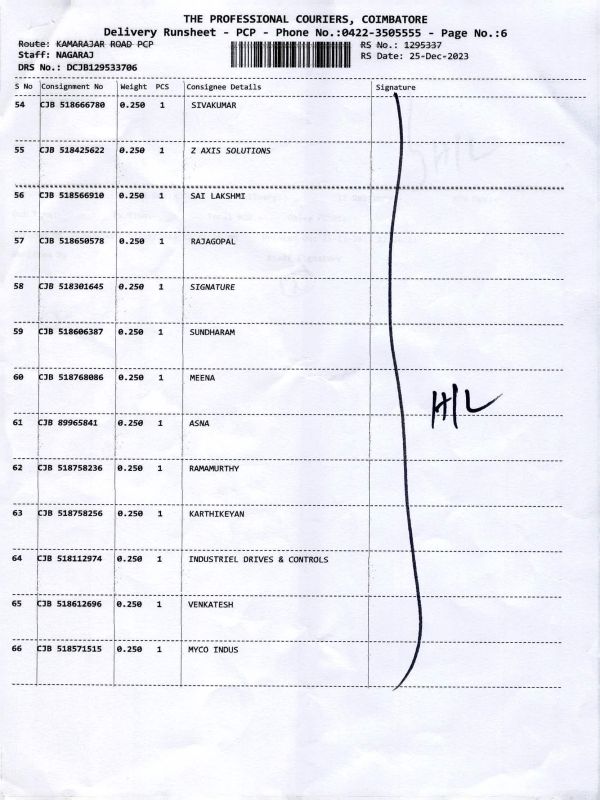 THE PROFESSIONAL COURIERS, COIMBATORE
Delivery Runsheet - PCP - Phone No.:0422-3505555 - Page No.:6
Route: KAMARAJAR ROAD PCP
RS No.: 1295337
Staff: NAGARAJ
RS Date: 25-Dec-2023
DRS No.: DCJB129533706
S No Consignment No Weight PCS Consignee Details Signature
54 CJB 518666780 0.250 1 SIVAKUMAR
55 CJB 518425622 0.250 1 Z AXIS SOLUTIONS
56 CJB 518566910 0.250 1 SAI LAKSHMI
57 CJB 518650578 0.250 1 RAJAGOPAL
58 CJB 518301645 0.250 1 SIGNATURE
59 CJB 518606387 0.250 1 SUNDHARAM
60 CJB 518768086 0.250 1 MEENA
H/L
61 CJB 89965841 0.250 1 ASNA
62 CJB 518758236 0.250 1 RAMAMURTHY
63 CJB 518758256 0.250 1 KARTHIKEYAN
64 CJB 518112974 0.250 1 INDUSTRIEL DRIVES & CONTROLS
65 CJB 518612696 0.250 1 VENKATESH
66 CJB 518571515 0.250 1 MYCO INDUS